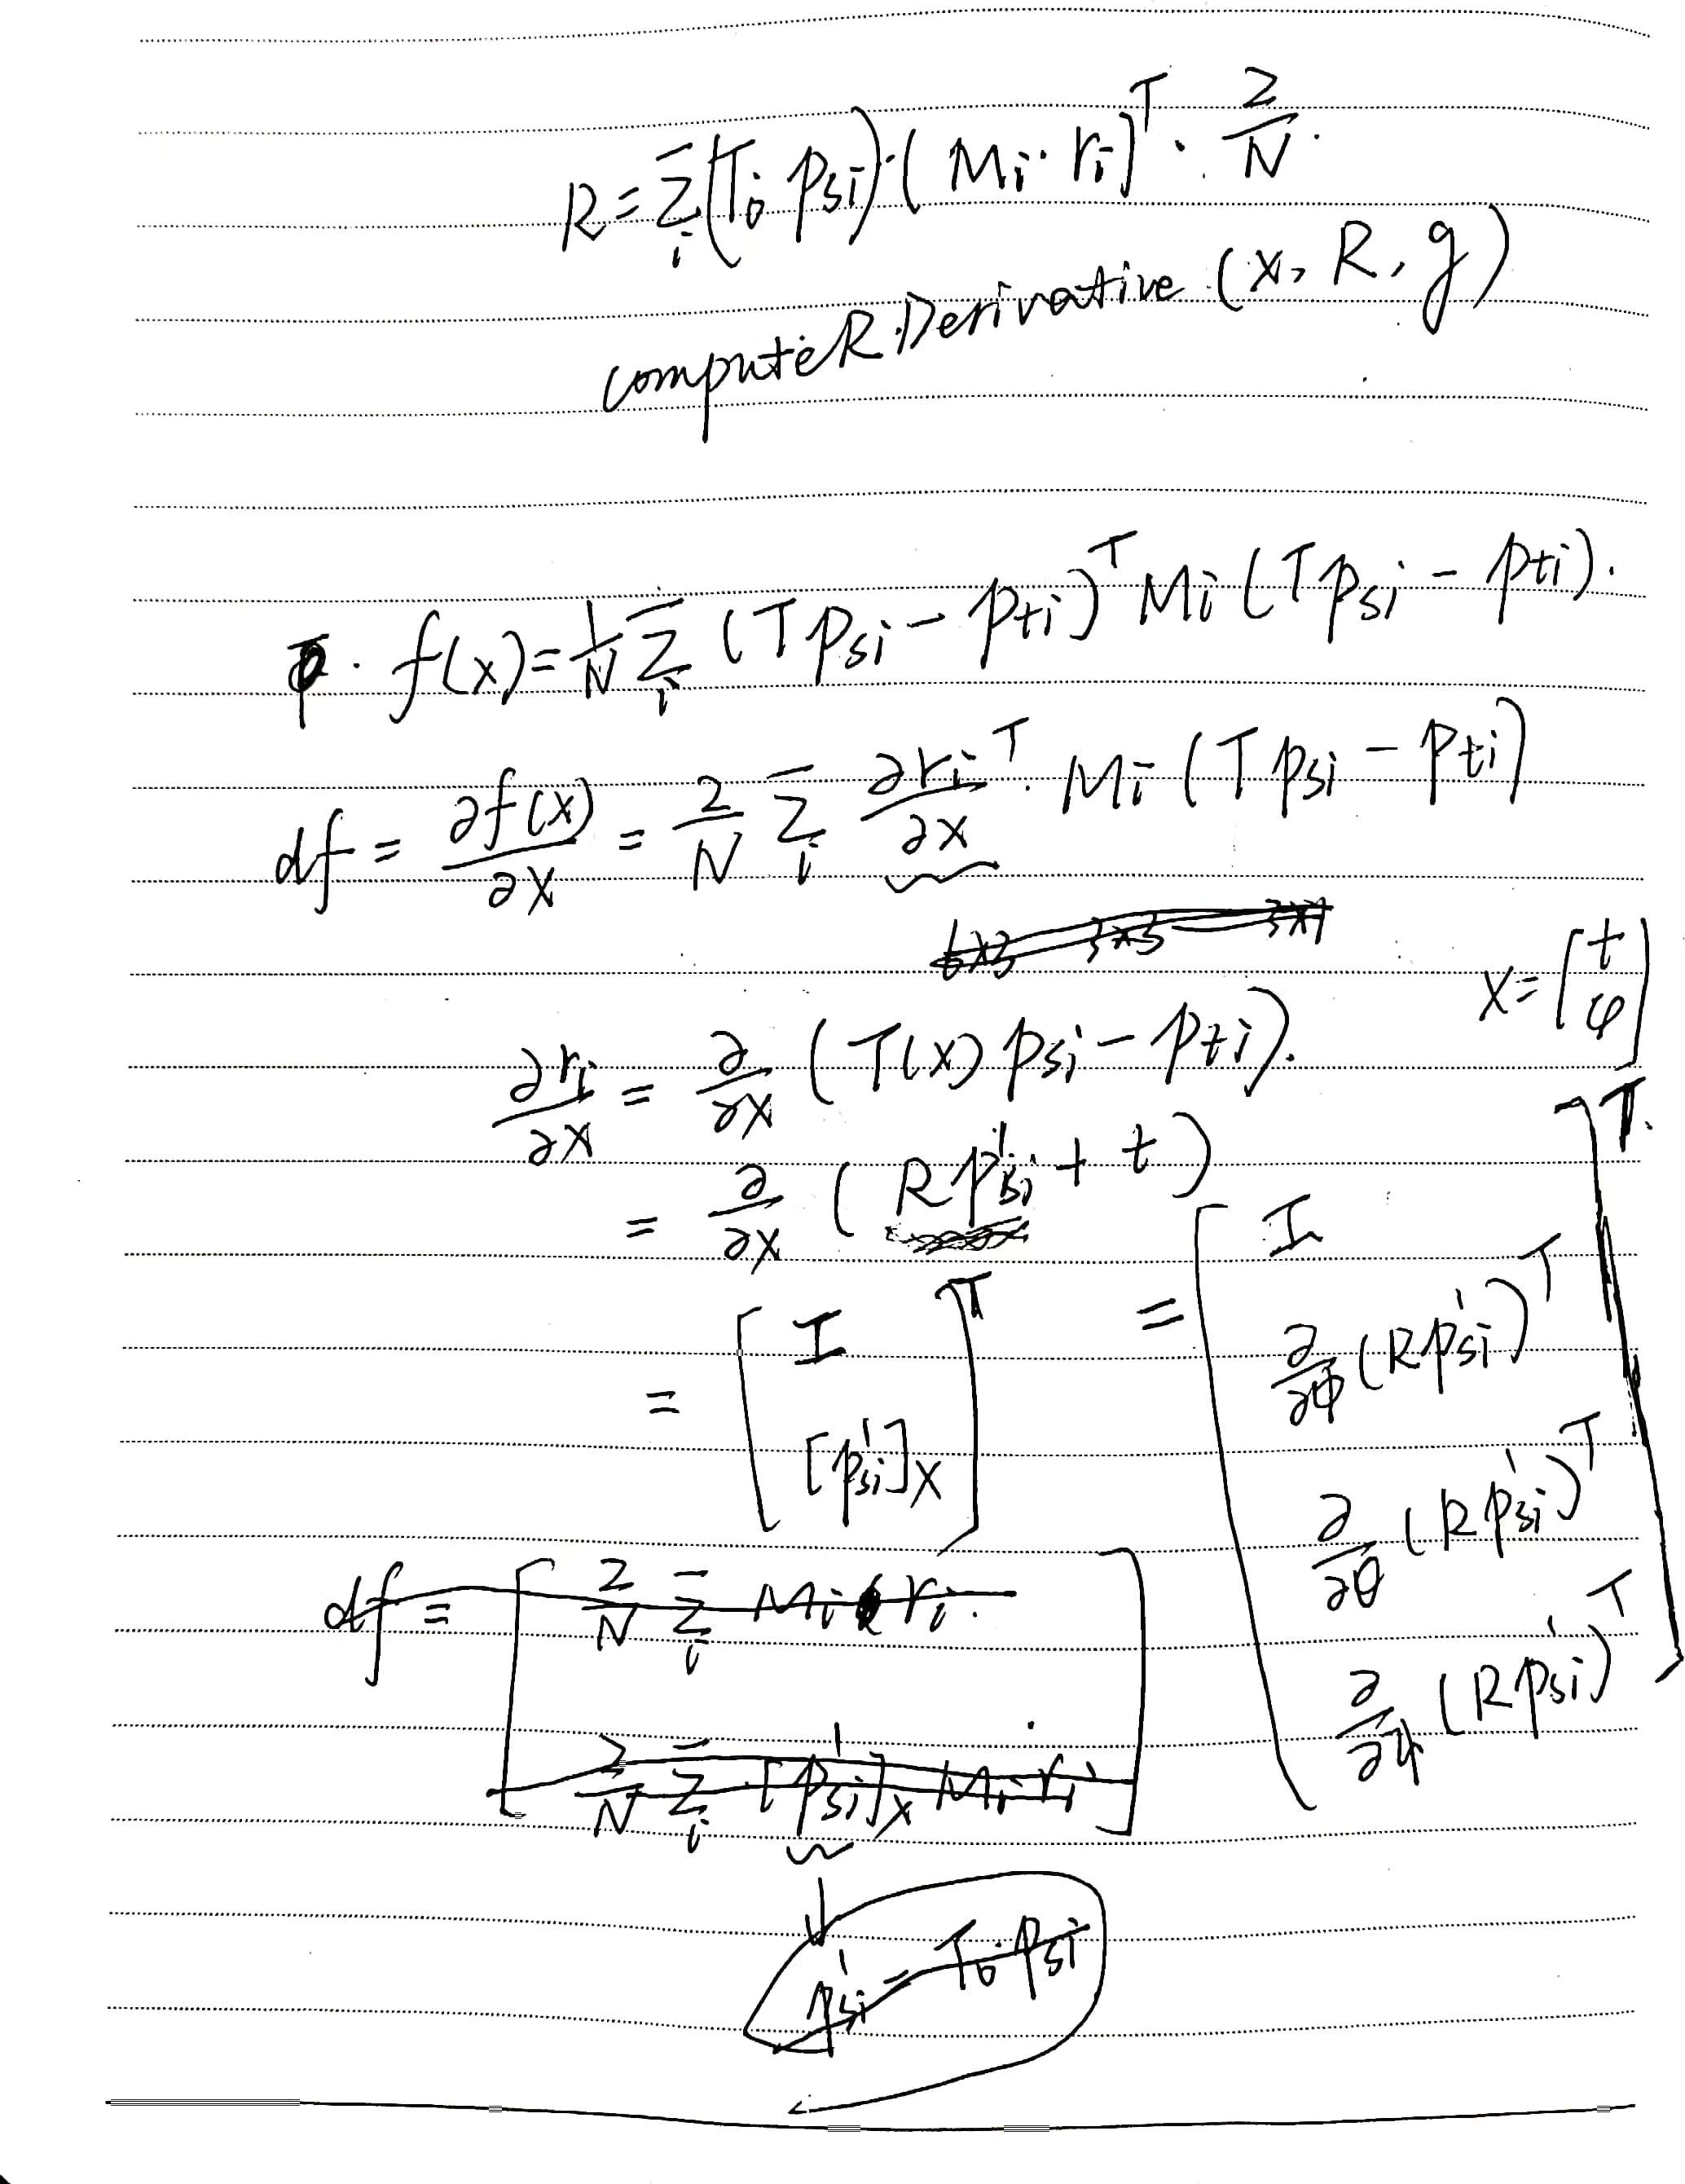 R = Σ_i (T_0 p_si) · (M_i · r_i)^T · 2/N.
computeRDerivative (x, R, g)
· f(x) = 1/N Σ_i (T p_si − p_ti)^T M_i (T p_si − p_ti).
df = ∂f(x)/∂x = 2/N Σ_i ∂r_i/∂x^T · M_i (T p_si − p_ti)
6×3 3×3 3×1
x = [t φ]
∂r_i/∂x = ∂/∂x (T(x) p_si − p_ti).
= ∂/∂x (R p'_si + t)
= [I [p'_si]_×]^T = [I ∂/∂φ (R p'_si)^T ∂/∂θ (R p'_si)^T ∂/∂ψ (R p'_si)^T]^T.
df = [2/N Σ_i M_i r_i. 2/N Σ_i [p'_si]_× M_i r_i]
↓
p'_si = T_0 · p_si